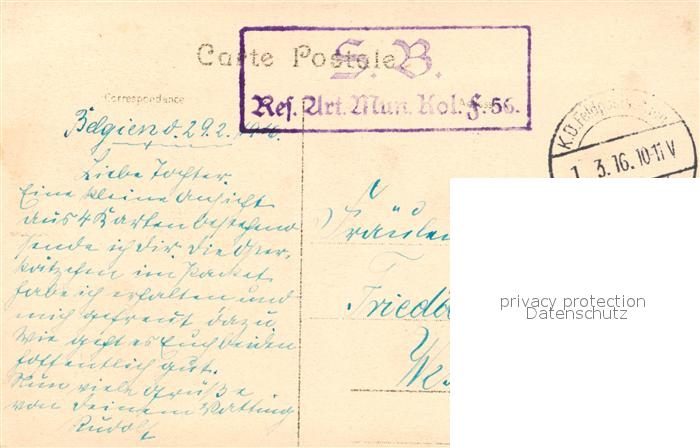 Carte Postale
S. B.
Res. Art. Mun. Kol. F. 56.
Correspondance
K.D. Feldpost
1. 3.16. 10-11 V
Belgien d. 29.2. 1916.
Liebe Tochter.
Eine kleine Ansicht
aus 4 Karten bestehend
sende ich dir. Die
kätzchen im Packet
habe ich erhalten und
mich gefreut dazu
Wie geht es Euch beiden
hoffentlich gut.
Nun viele Grüße
von deinem
Rudolf
Fräulein
Friedb
privacy protection
Datenschutz